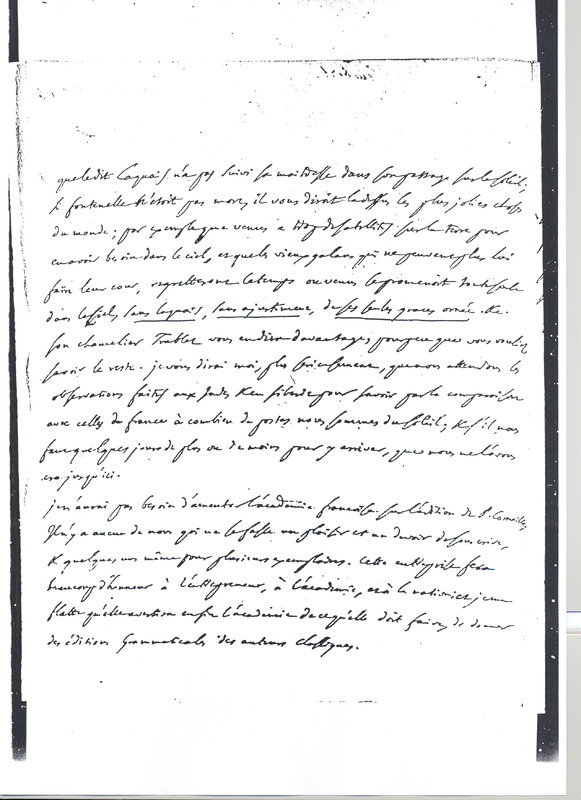 que ledit laquais n'a pas suivi sa maitresse dans son passage sur le soleil.
si fontenelle n'étoit pas mort, il vous diroit la dessus les plus jolies choses
du monde; par exemple que venus a trop de satellites sur la terre pour
en avoir besoin dans le ciel, et que les vieux galans qui ne peuvent plus lui
faire leur cour, regrettent le temps ou venus se promenoit toute seule
dans le ciel, sans laquais, sans ajustement, de ses seules graces ornée &c.
son chancelier Trublet vous en dira davantage, pour peu que vous vouliez
savoir le reste. je vous dirai moi, plus serieusement, que nous attendons les
observations faites aux Indes & en siberie pour savoir par la comparaison
avec celles de france à combien de postes nous sommes du soleil, & s'il nous
faut quelques jours de plus ou de moins pour y arriver, que nous ne l'avons
cru jusqu'ici.
je n'aurai pas besoin d'ameuter l'académie françoise sur l'édition de P. Corneille,
il n'y a aucun de nous qui ne se fasse un plaisir et un devoir de souscrire,
& quelques uns même pour plusieurs exemplaires. Cette entreprise fera
beaucoup d'honneur à l'entrepreneur, à l'académie, et à la nation; et je me
flatte qu'elle avertira enfin l'académie de ce qu'elle doit faire, de donner
des éditions grammaticales des auteurs classiques.